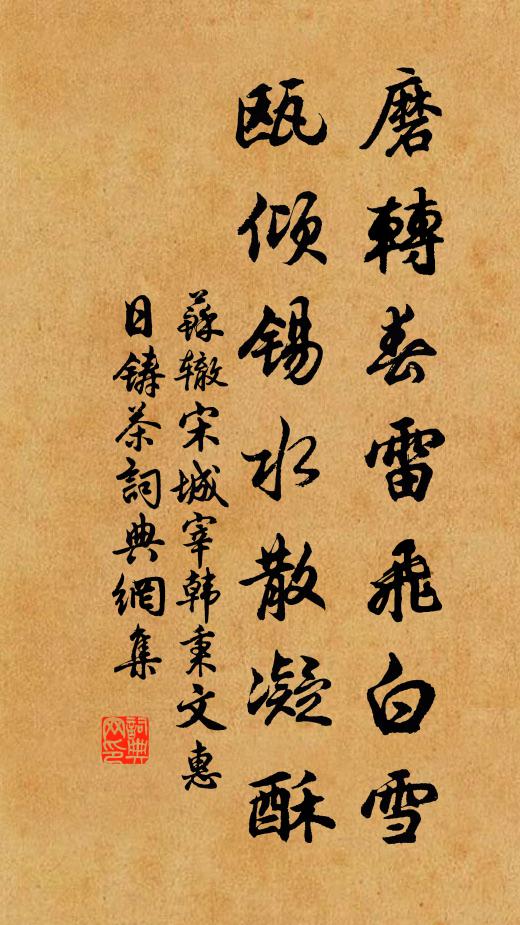 磨轉春雷飛白雪
甌傾錫水散凝酥
蘇辙宋城宰韩秉文惠
日鑄茶詞典網集
詞典网印